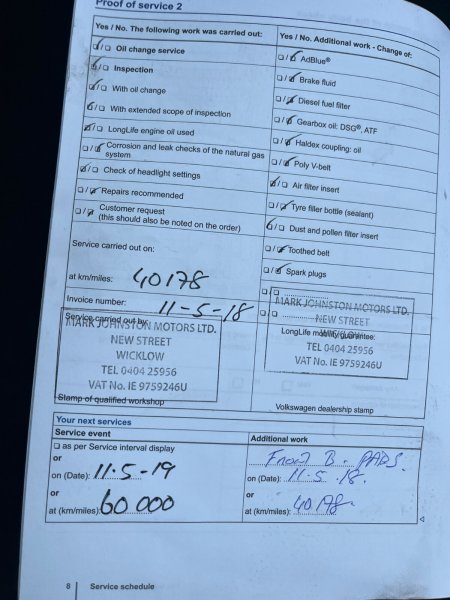 Proof of service 2
Yes / No. The following work was carried out:
☑/☐ Oil change service
☑/☐ Inspection
☑/☐ With oil change
☑/☐ With extended scope of inspection
☑/☐ LongLife engine oil used
☐/☑ Corrosion and leak checks of the natural gas
system
☑/☐ Check of headlight settings
☐/☑ Repairs recommended
☐/☑ Customer request
(this should also be noted on the order)
Service carried out on:
at km/miles: 40178
Invoice number: 11-5-18
Service carried out by:
MARK JOHNSTON MOTORS LTD.
NEW STREET
WICKLOW
TEL 0404 25956
VAT No. IE 9759246U
Stamp of qualified workshop
Yes / No. Additional work - Change of:
☐/☑ AdBlue®
☐/☑ Brake fluid
☐/☑ Diesel fuel filter
☐/☑ Gearbox oil: DSG®, ATF
☐/☑ Haldex coupling: oil
☐/☑ Poly V-belt
☑/☐ Air filter insert
☐/☑ Tyre filler bottle (sealant)
☑/☐ Dust and pollen filter insert
☐/☑ Toothed belt
☐/☑ Spark plugs
☐/☐
☐/☐
MARK JOHNSTON MOTORS LTD.
NEW STREET
WICKLOW
LongLife mobility guarantee:
TEL 0404 25956
VAT No. IE 9759246U
Volkswagen dealership stamp
Your next services
Service event
☐ as per Service interval display
or
on (Date): 11.5-19
or
at (km/miles): 60 000
Additional work
Front B. PADS.
on (Date): 11.5.18.
or
at (km/miles): 40178
8 Service schedule